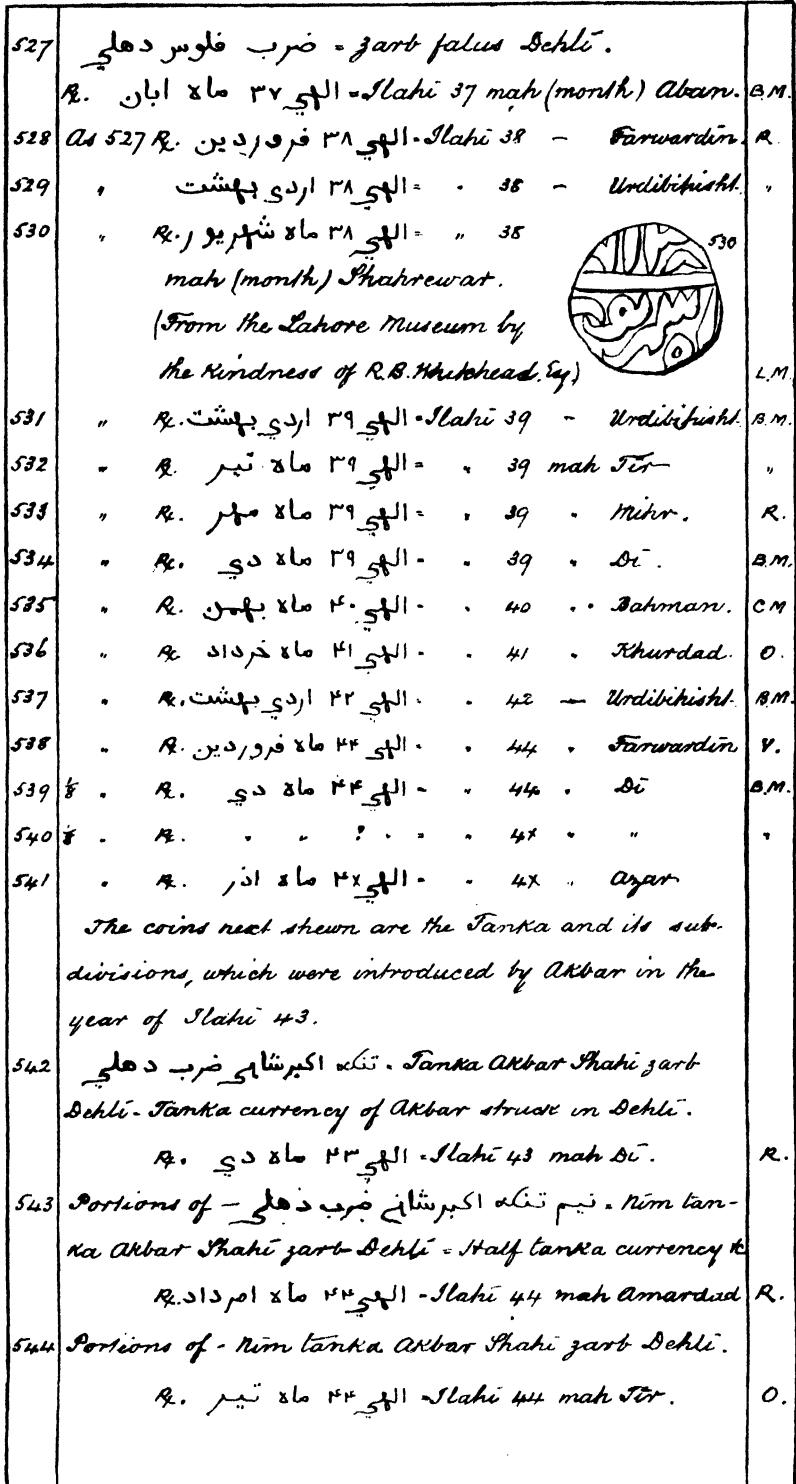 527 ضرب فلوس دهلي = zarb falus Dehli.
R. الهي ۳۷ ماه ابان = Ilahi 37 mah (month) Aban. B.M.
528 As 527 R. الهي ۳۸ فروردين = Ilahi 38 – Farwardin. R.
529 " الهي ۳۸ اردي بهشت = " 38 – Urdibihisht. "
530 " R. الهي ۳۸ ماه شهريور = " 38
530
mah (month) Shahrewar.
(From the Lahore Museum by
the kindness of R.B. Whitehead. Esq) L.M.
531 " R. الهي ۳۹ اردي بهشت = Ilahi 39 – Urdibihisht. B.M.
532 " R. الهي ۳۹ ماه تير = " 39 mah Tir "
533 " R. الهي ۳۹ ماه مهر = " 39 " Mihr. R.
534 " R. الهي ۳۹ ماه دي = " 39 " Di. B.M.
535 " R. الهي ۴۰ ماه بهمن = " 40 " Bahman. C M
536 " R. الهي ۴۱ ماه خرداد = " 41 " Khurdad. O.
537 " R. الهي ۴۲ اردي بهشت = " 42 — Urdibihisht. B.M.
538 " R. الهي ۴۴ ماه فروردين = " 44 " Farwardin V.
539 ⅛ " R. الهي ۴۴ ماه دي = " 44 " Di B.M.
540 ⅛ " R. " " " ? " = " 4x " " "
541 " R. الهي ۴x ماه اذر = " 4x " Azar
The coins next shewn are the Tanka and its sub-
divisions, which were introduced by Akbar in the
year of Ilahi 43.
542 تنكه اكبرشاهي ضرب دهلي = Tanka Akbar Shahi zarb
Dehli = Tanka currency of Akbar struck in Dehli.
R. الهي ۴۳ ماه دي = Ilahi 43 mah Di. R.
543 Portions of – نيم تنكه اكبرشاهي ضرب دهلي = Nim tan-
ka Akbar Shahi zarb Dehli = Half tanka currency &c
R. الهي ۴۴ ماه امرداد = Ilahi 44 mah Amardad R.
544 Portions of – Nim tanka Akbar Shahi zarb Dehli.
R. الهي ۴۴ ماه تير = Ilahi 44 mah Tir. O.